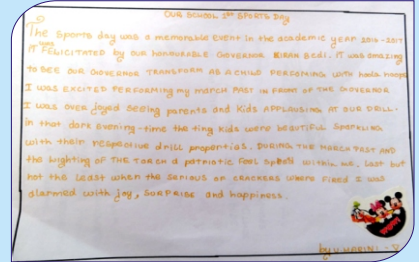 OUR SCHOOL 1st SPORTS DAY
The Sports day was a memorable event in the academic year 2016-2017
IT was FELICITATED by our honourable Governor KIRAN BEDI. IT was amazing
to see our Governor TRANSFORM AS A CHILD PERFOMING WITH hoola hoops
I was excited performing my march past in front of the Governor
I was over joyed seeing parents and kids APPLAUSING AT our DRILL.
in that dark evening-time the ting kids were beautiful sparkling
with their respective drill properties. DURING THE MARCH PAST AND
the Lighting of the TORCH a patriotic feel within us. Last but
not the least when the serious of CRACKERS where fired I was
alarmed with joy, SURPRISE and happiness.
by V. HARINI - V